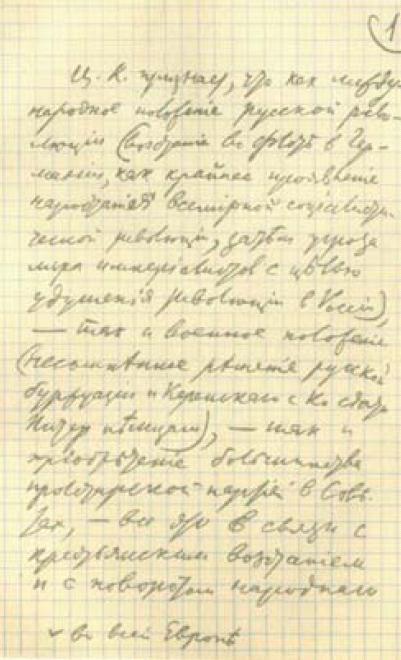 1
Ц. К. признает, что как между-
народное положение русской рево-
люции (восстание во флоте в Гер-
мании, как крайнее проявление
нарастания ˅ всемирной социалисти-
ческой революции, затем угроза
мира империалистов с целью
удушения революции в России),
— так и военное положение
(несомненное решение русской
буржуазии и Керенского с Ко сдать
Питер немцам), — так и
приобретение большинства
пролетарской партией в Сове-
тах, — все это в связи с
крестьянским восстанием
и с поворотом народного
˅ во всей Европѣ